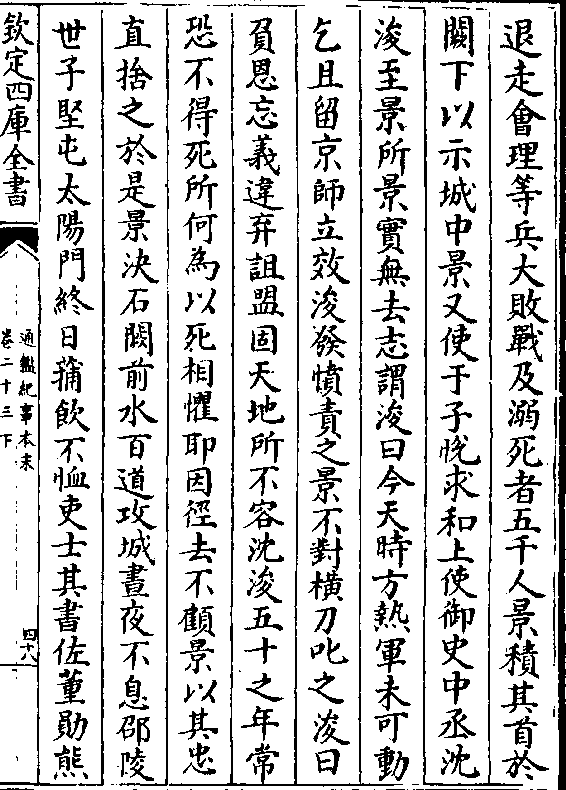 退走會理等兵大敗戰及溺死者五千人景積其首於
闕下以示城中景又使于子悅求和上使御史中丞沈
浚至景所景實無去志謂浚曰今天時方熱軍未可動
乞且留京師立效浚發憤責之景不對橫刀叱之浚曰
負恩忘義違弃詛盟固天地所不容沈浚五十之年常
恐不得死所何為以死相懼耶因徑去不顧景以其忠
直捨之於是景決石闕前水百道攻城晝夜不息邵陵
世子堅屯太陽門終日蒱飲不恤吏士其書佐董勛熊
欽定四庫全書
通鑑紀事本末
卷二十三下
四十八